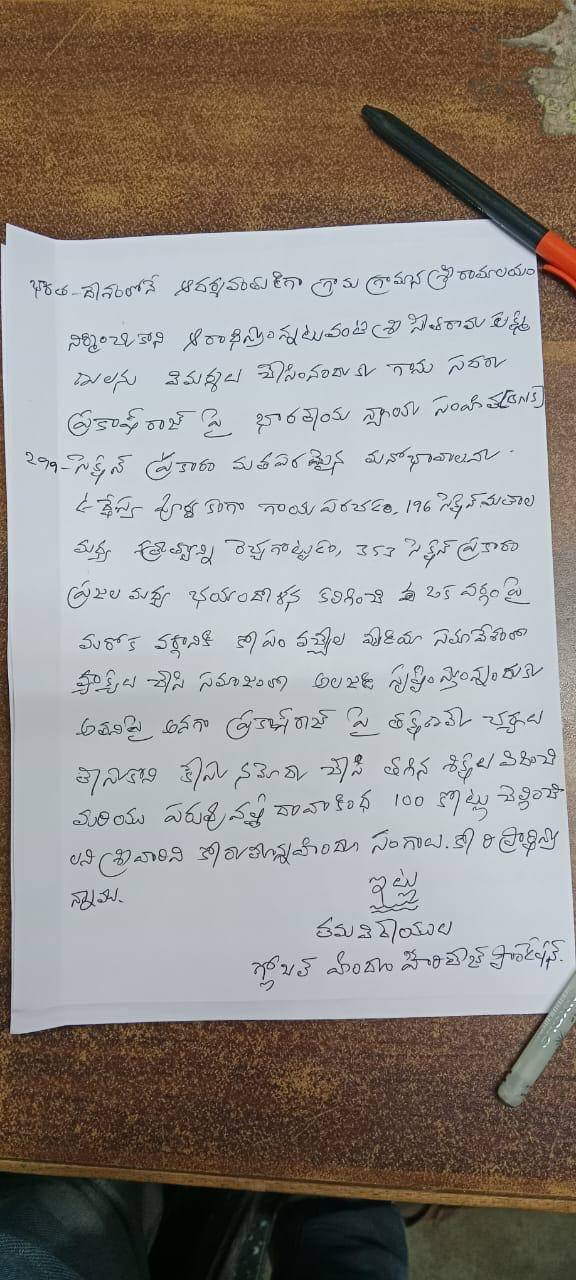 భారత-దేశంలోనే ఆదర్శవంతుడిగా గ్రామ గ్రామన శ్రీ రామాలయం
నిర్మించుకొని ఆరాధిస్తున్నటువంటి శ్రీ సీతారామ లక్ష్మ
ణులను విమర్శలు చేసినందుకు గాను సదరు
ప్రకాష్ రాజ్ పై భారతీయ న్యాయ సంహిత (BNS)
299-సెక్షన్ ప్రకారం మతపరమైన మనోభావాలను
ఉద్దేశ్య పూర్వకంగా గాయపరచడం, 196 సెక్షన్ మతాల
మధ్య శత్రుత్వాన్ని రెచ్చగొట్టడం, 353 సెక్షన్ ప్రకారం
ప్రజల మధ్య భయాందోళన కలిగించి ఒక వర్గం పై
మరొక వర్గానికి కోపం వచ్చేల మీడియా సమావేశంలో
వ్యాఖ్యలు చేసి సమాజంలో అలజడి సృష్టిస్తున్నందుకు
అతనిపై అనగా ప్రకాష్ రాజ్ పై తక్షణమే చర్యలు
తీసుకొని కేసు నమోదు చేసి తగిన శిక్షలు విధించి
మరియు పరువు నష్టం దావా కింద 100 కోట్లు చెల్లించా
లని శ్రీవారిని కోరుతున్న హిందూ సంఘాలు. కోరి ప్రార్థిస్తు
న్నాము.
ఇట్లు
తమ విధేయులు
గ్లోబల్ హిందూ హెరిటేజ్ ఫౌండేషన్.